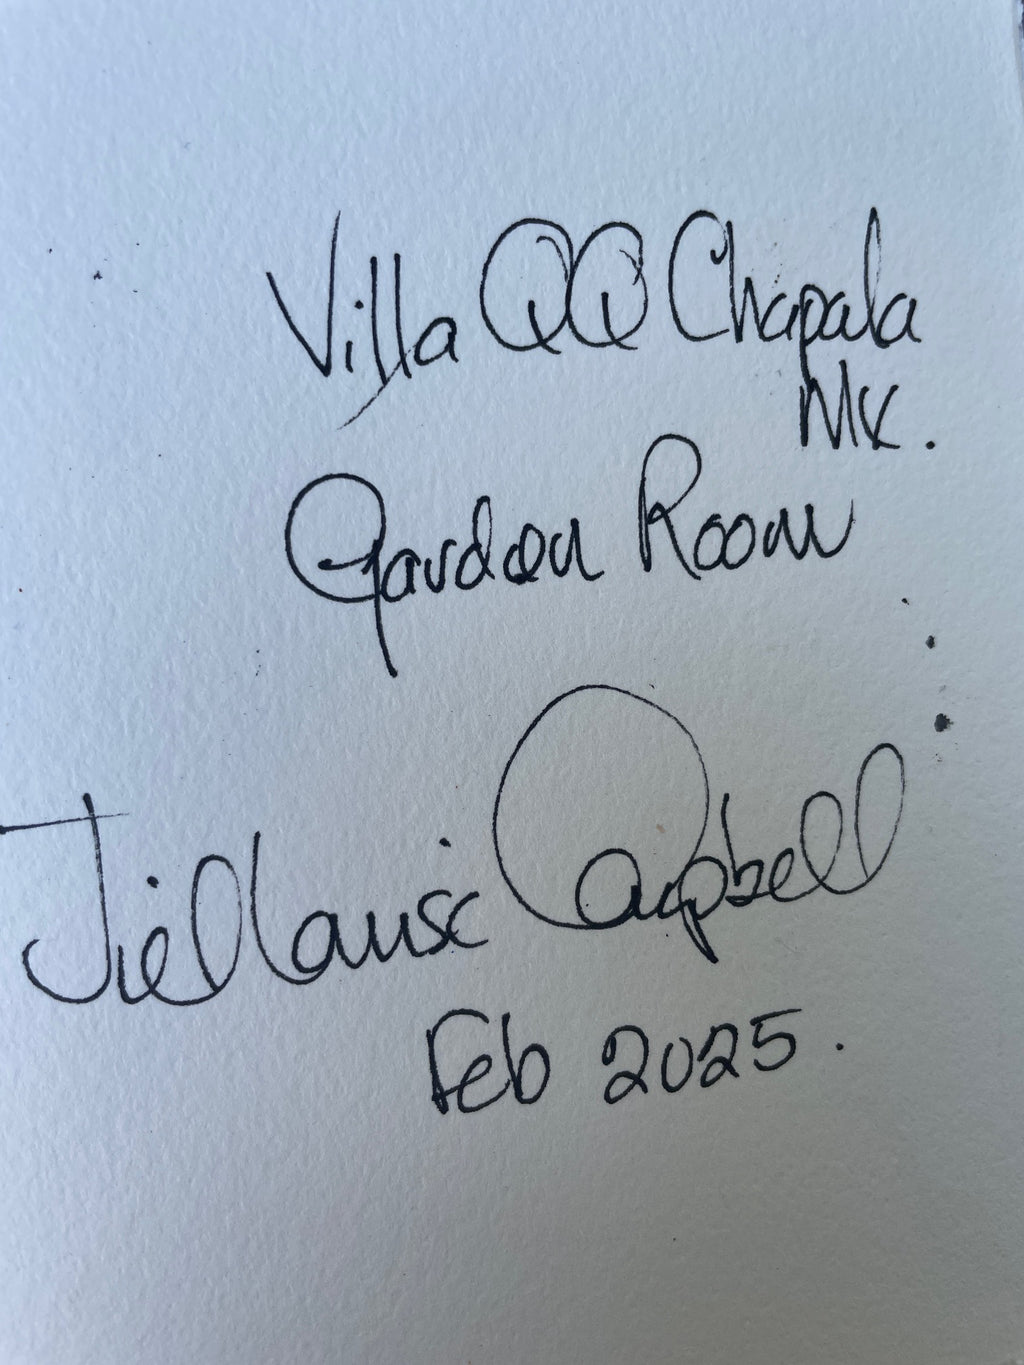 Villa QQ Chapala
MX.
Garden Room
Campbell
Feb 2025.